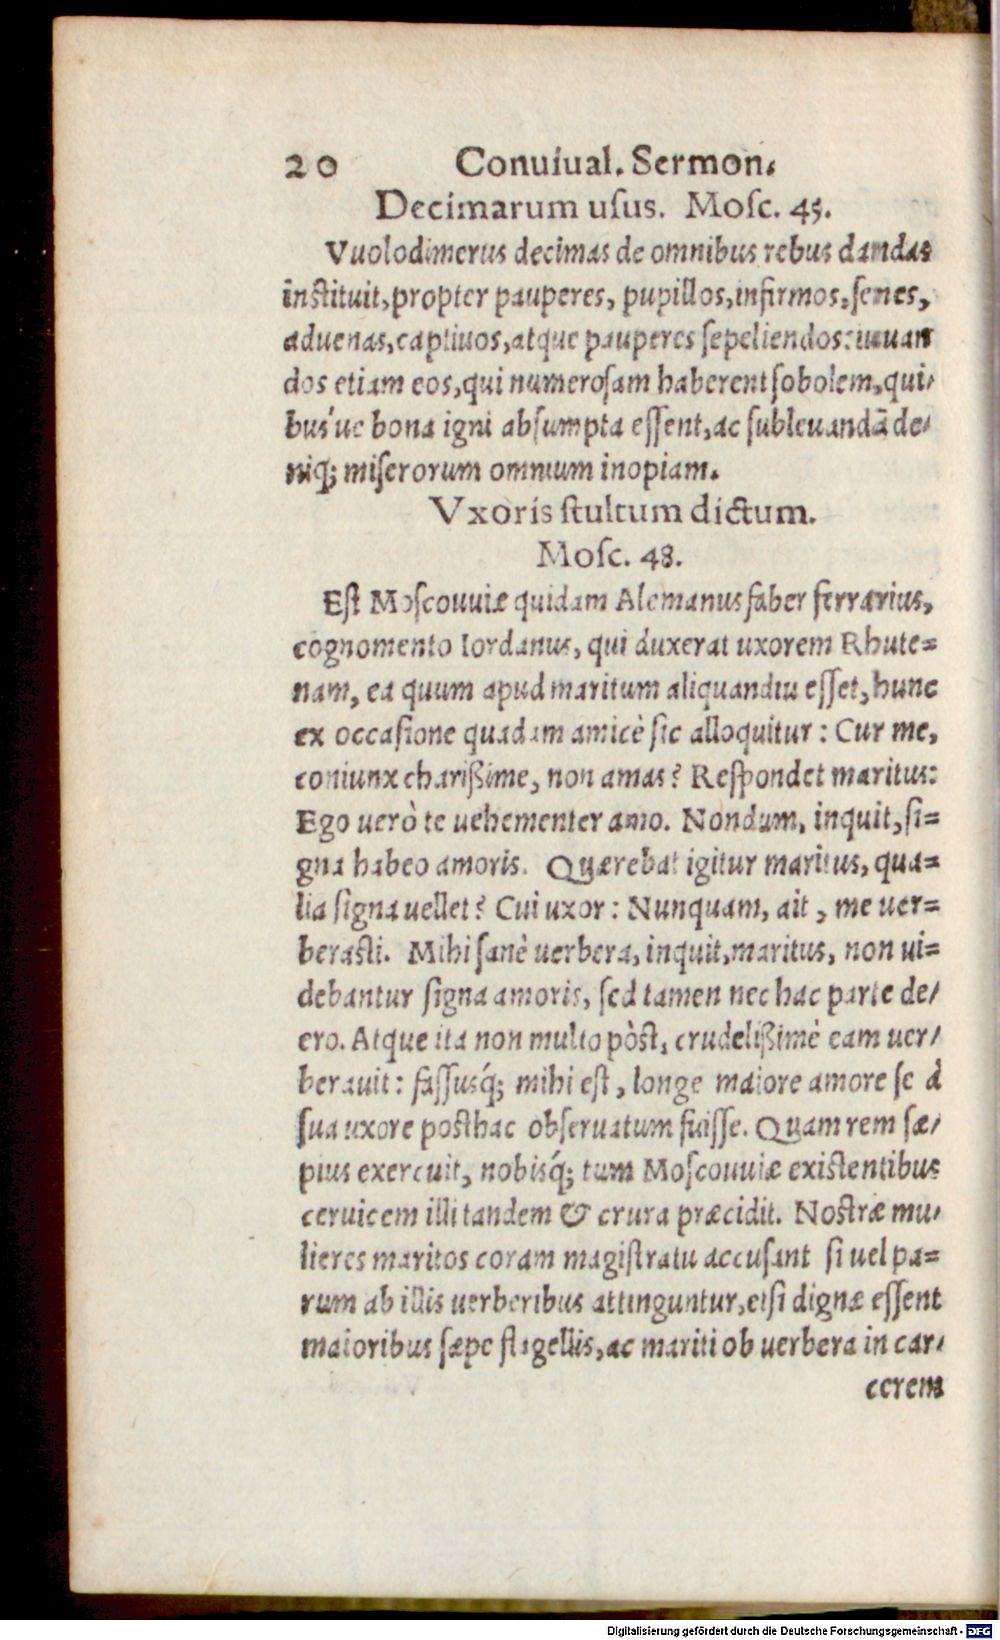 20 Conuiual. Sermon.
Decimarum usus. Mosc. 45.
Vuolodimerus decimas de omnibus rebus dandas
instituit, propter pauperes, pupillos, infirmos, senes,
aduenas, captiuos, atque pauperes sepeliendos: iuuan
dos etiam eos, qui numerosam haberent sobolem, qui-
bus'ue bona igni absumpta essent, ac subleuandā de-
niq; miserorum omnium inopiam.
Vxoris stultum dictum.
Mosc. 48.
Est Moscouuiæ quidam Alemanus faber ferrarius,
cognomento Iordanus, qui duxerat uxorem Rhute=
nam, ea quum apud maritum aliquandiu esset, hunc
ex occasione quadam amicè sic alloquitur: Cur me,
coniunx charißime, non amas? Respondet maritus:
Ego uerò te uehementer amo. Nondum, inquit, si=
gna habeo amoris. Quærebat igitur maritus, qua=
lia signa uellet? Cui uxor: Nunquam, ait, me uer=
berasti. Mihi sanè uerbera, inquit, maritus, non ui=
debantur signa amoris, sed tamen nec hac parte de-
ero. Atque ita non multo pòst, crudelißimè eam uer-
berauit: fassusq́; mihi est, longe maiore amore se à
sua uxore posthac obseruatum fuisse. Quam rem sæ-
pius exercuit, nobisq́; tum Moscouuiæ existentibus
ceruicem illi tandem & crura præcidit. Nostræ mu-
lieres maritos coram magistratu accusant si uel pa=
rum ab illis uerberibus attinguntur, etsi dignæ essent
maioribus sæpe flagellis, ac mariti ob uerbera in car-
cerem
Digitalisierung gefördert durch die Deutsche Forschungsgemeinschaft - DFG